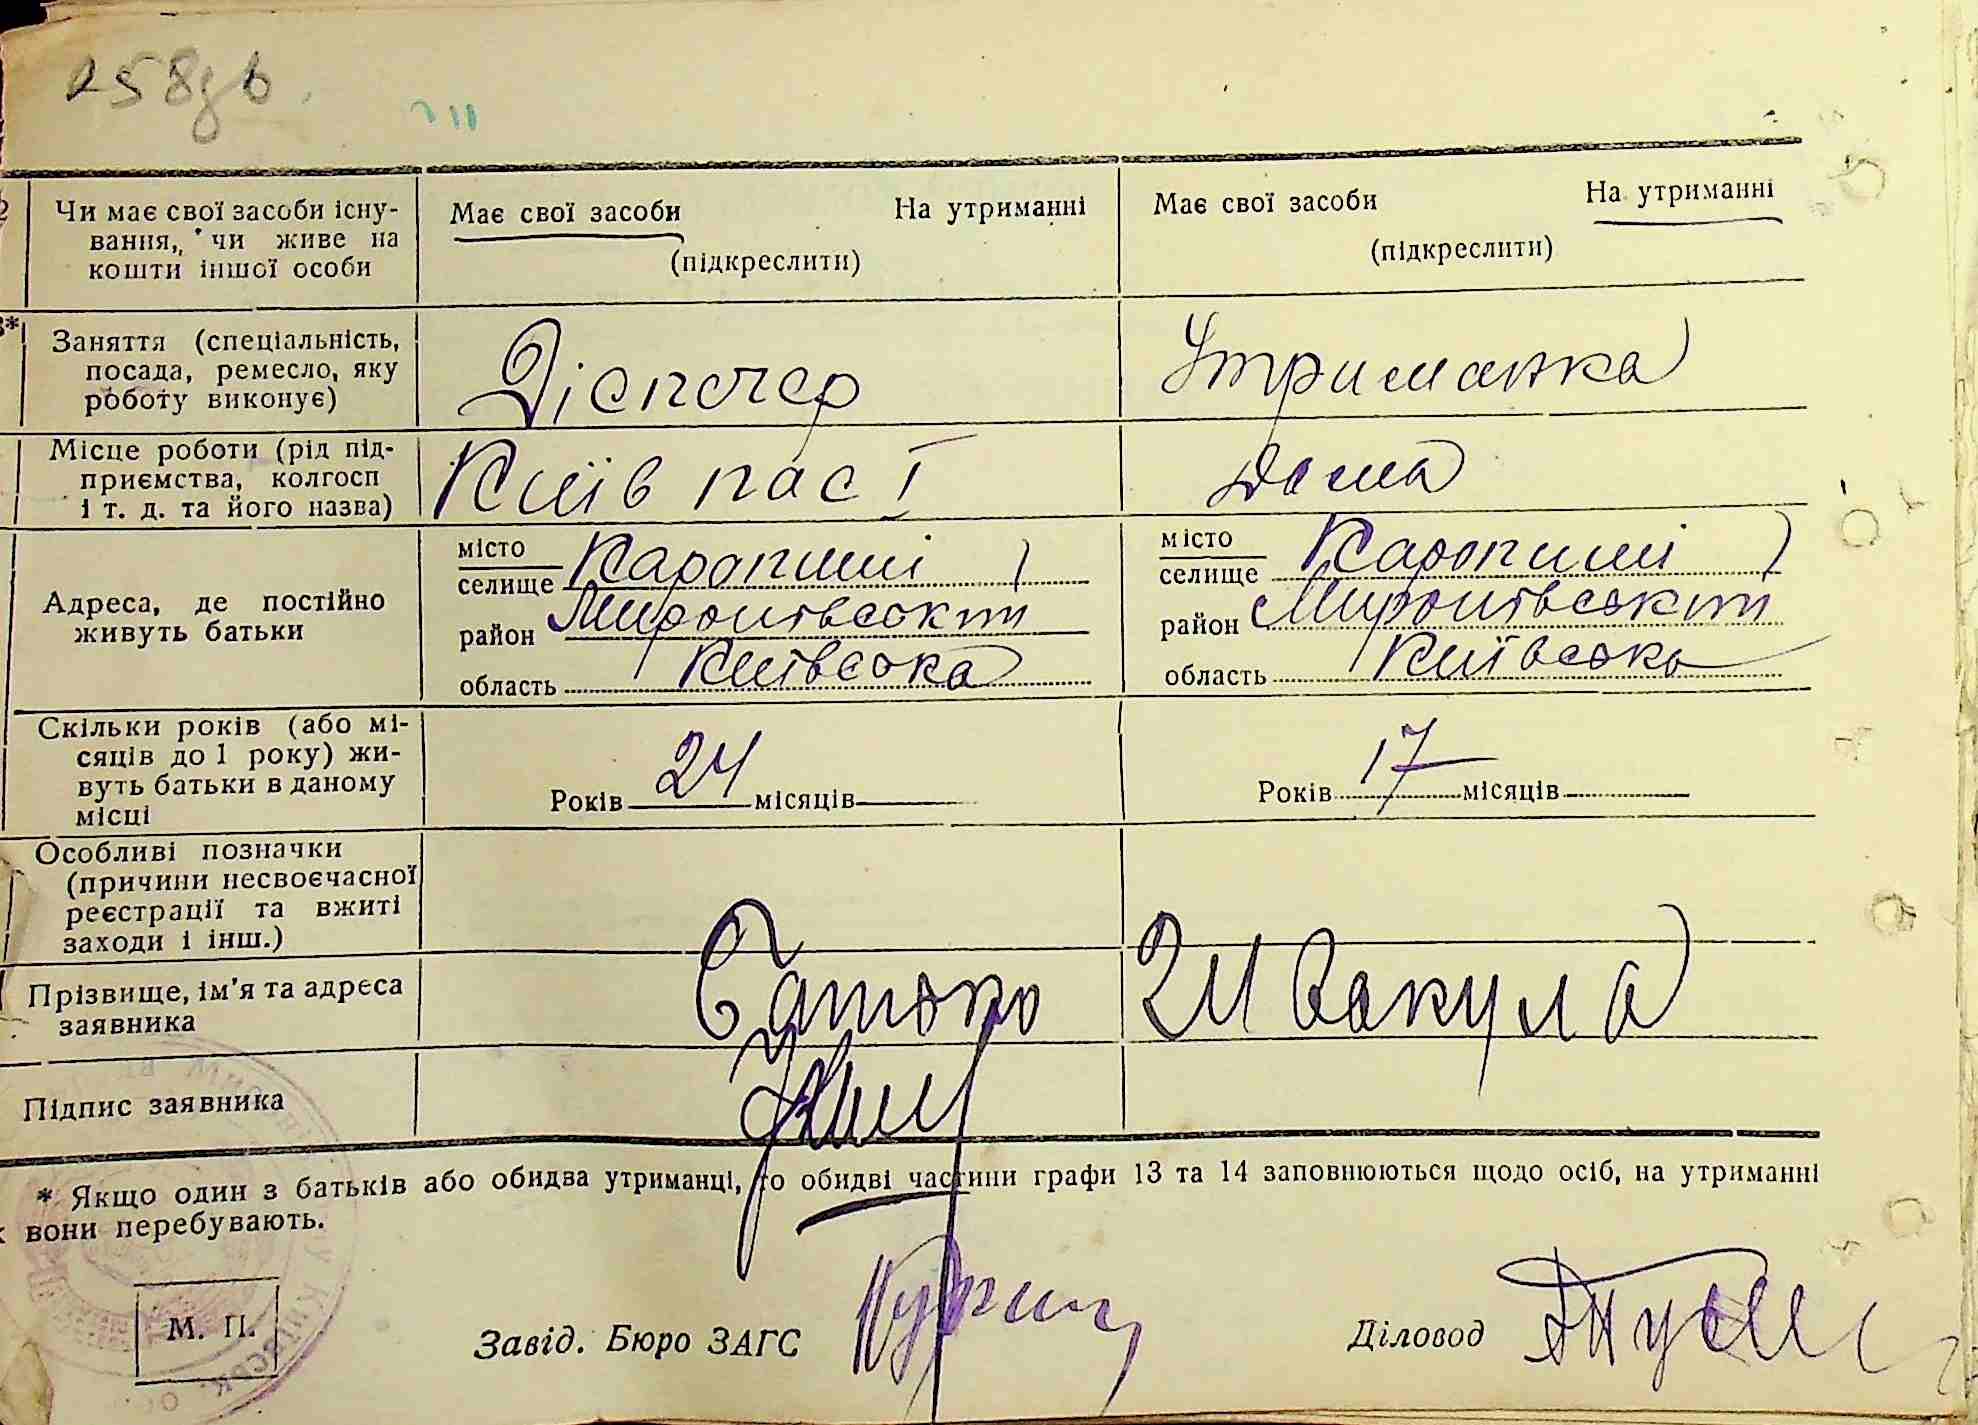 258зв
Чи має свої засоби існу-
вання, чи живе на
кошти іншої особи
Має свої засоби На утриманні
(підкреслити)
Має свої засоби На утриманні
(підкреслити)
Заняття (спеціальність,
посада, ремесло, яку
роботу виконує)
Діспечер
Утриманка
Місце роботи (рід під-
приємства, колгосп
і т. д. та його назва)
Київ пас І
Дома
Адреса, де постійно
живуть батьки
місто
селище Карапиші
район Миронівський
область Київська
місто
селище Карапиші
район Миронівський
область Київська
Скільки років (або мі-
сяців до 1 року) жи-
вуть батьки в даному
місці
Років 24 місяців
Років 17 місяців
Особливі позначки
(причини несвоєчасної
реєстрації та вжиті
заходи і інш.)
Прізвище, ім'я та адреса
заявника
Батько Вакула
Підпис заявника
* Якщо один з батьків або обидва утриманці, то обидві частини графи 13 та 14 заповнюються щодо осіб, на утриманні
вони перебувають.
М. П.
Завід. Бюро ЗАГС
Діловод